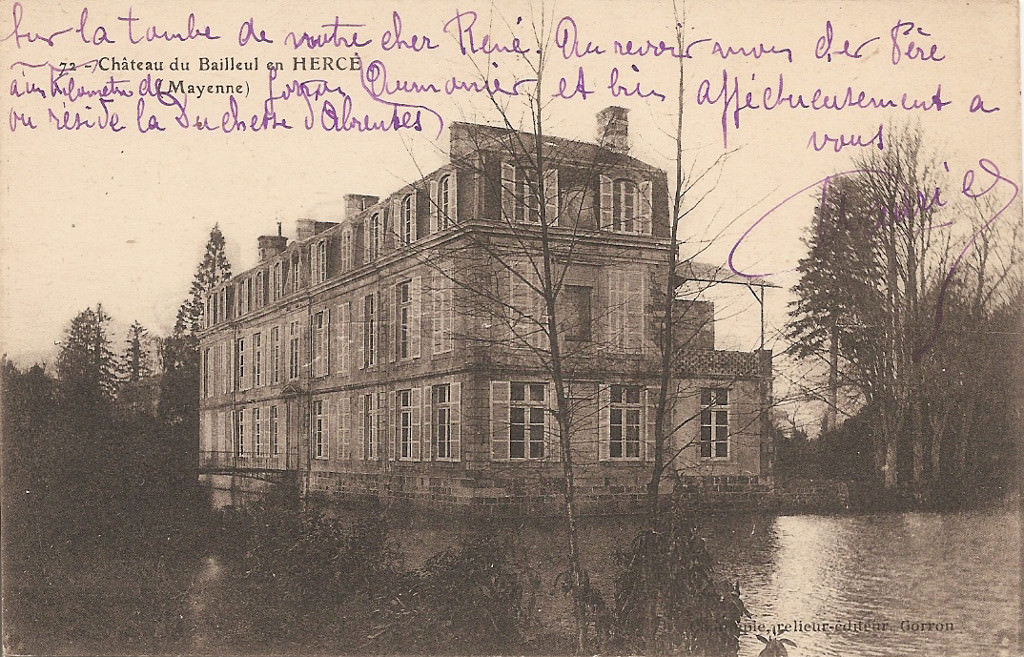 Sur la tombe de votre cher René. Au revoir mon cher Père
72 - Château du Bailleul en HERCÉ
(Mayenne)
à un kilomètre de Gorron Aumonier et bien affectueusement a
ou réside la Duchesse d'Abrentes)
vous
relieur-éditeur, Gorron